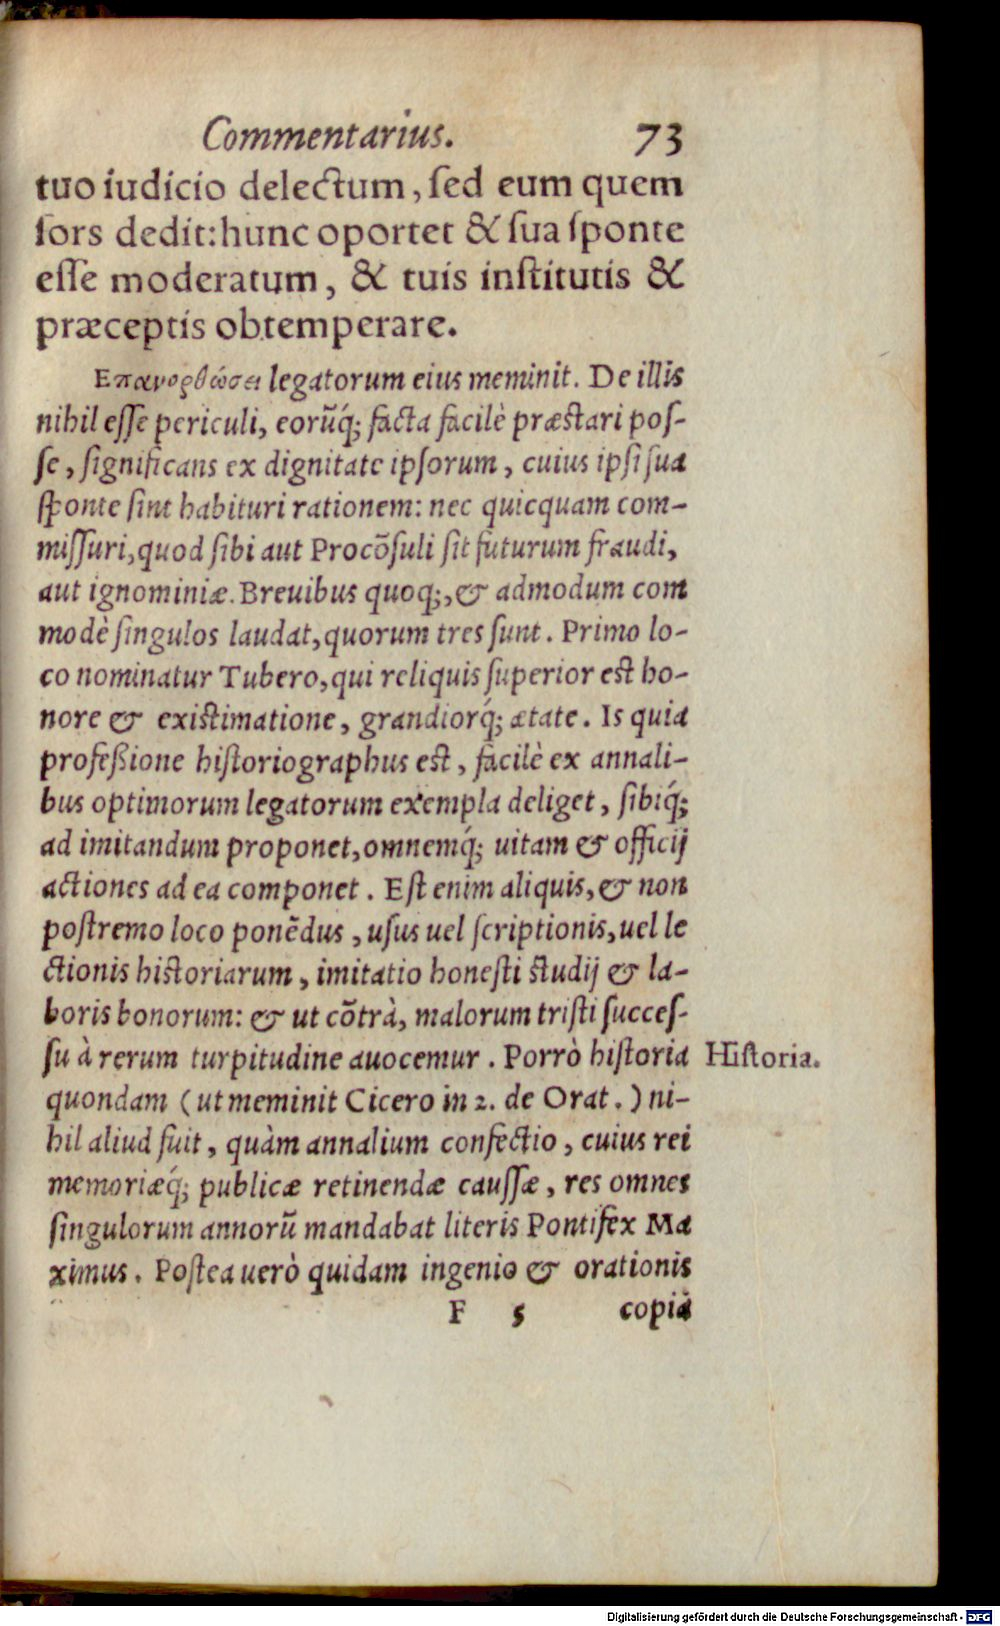 Commentarius. 73
tuo iudicio delectum, ſed eum quem
ſors dedit: hunc oportet & ſua ſponte
eſſe moderatum, & tuis inſtitutis &
præceptis obtemperare.
Επανορθώσει legatorum eius meminit. De illis
nihil eſſe periculi, eorūq́; facta facilè præstari poſ-
ſe, ſignificans ex dignitate ipſorum, cuius ipſi ſua
ſponte ſint habituri rationem: nec quicquam com-
miſſuri, quod ſibi aut Procōſuli ſit futurum fraudi,
aut ignominiæ. Breuibus quoq;, & admodum com
modè ſingulos laudat, quorum tres ſunt. Primo lo-
co nominatur Tubero, qui reliquis ſuperior est ho-
nore & existimatione, grandiorq́; ætate. Is quia
profeßione hiſtoriographus est, facilè ex annali-
bus optimorum legatorum exempla deliget, ſibiq́;
ad imitandum proponet, omnemq́; uitam & officij
actiones ad ea componet. Est enim aliquis, & non
poſtremo loco ponēdus, uſus uel ſcriptionis, uel le
ctionis historiarum, imitatio honeſti studij & la-
boris bonorum: & ut cōtrà, malorum triſti ſucceſ-
ſu à rerum turpitudine auocemur. Porrò hiſtoria Hiſtoria.
quondam (ut meminit Cicero in 2. de Orat.) ni-
hil aliud fuit, quàm annalium confectio, cuius rei
memoriæq́; publicæ retinendæ cauſſæ, res omnes
ſingulorum annorū mandabat literis Pontifex Ma
ximus. Poſtea uerò quidam ingenio & orationis
F 5 copia
Digitalisierung gefördert durch die Deutsche Forschungsgemeinschaft - DFG